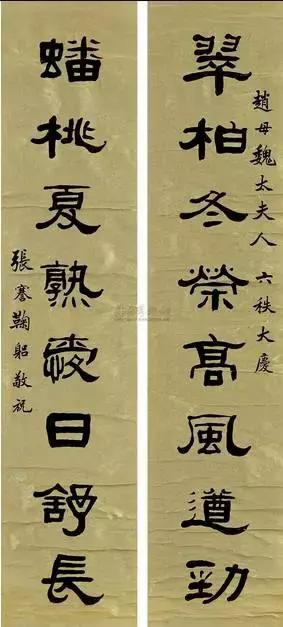 趙母魏太夫人 六秩大慶
翠柏冬榮髙風遒勁
蟠桃夏熟愛日舒長
張謇鞠躬敬祝